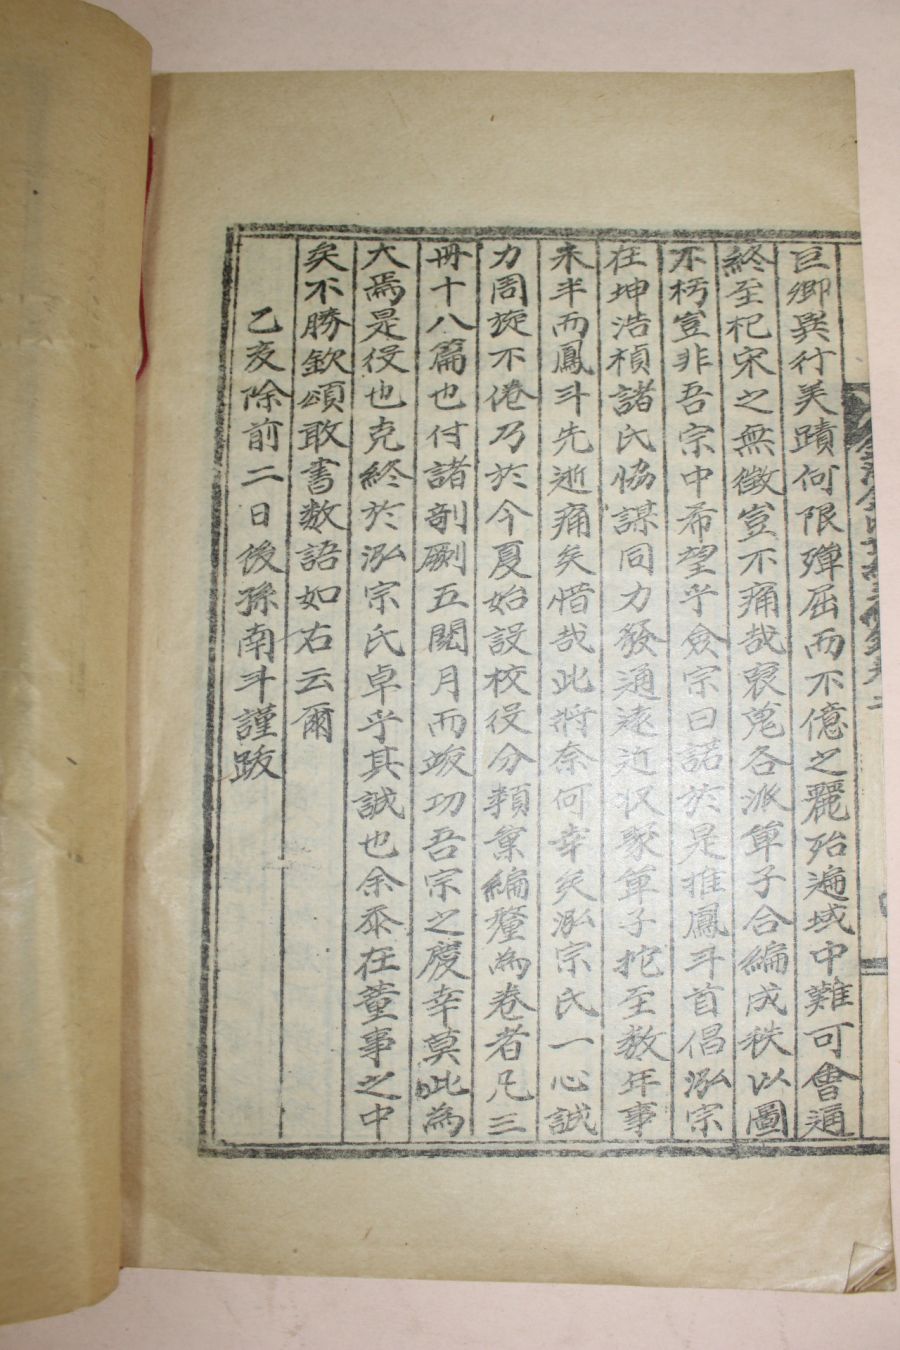 巨卿異行美蹟何限殫屈而不億之麗殆遍域中難可會通
終至杞宋之無徵豈不痛哉裒蒐各派單子合編成秩以圖
不朽豈非吾宗中希望乎僉宗曰諾於是推鳳斗首倡泓宗
在坤浩楨諸氏協謀同力發通遠近收聚單子挖至数年事
未半而鳳斗先逝痛矣惜哉此將奈何幸矣泓宗氏一心誠
力周旋不倦乃於今夏始設校役分類彙編釐為卷者凡三
冊十八篇也付諸剞劂五閱月而竣功吾宗之慶幸莫此為
大焉是役也克終於泓宗氏卓乎其誠也余忝在董事之中
矣不勝欽頌敢書数語如右云爾
乙亥除前二日後孫南斗謹跋